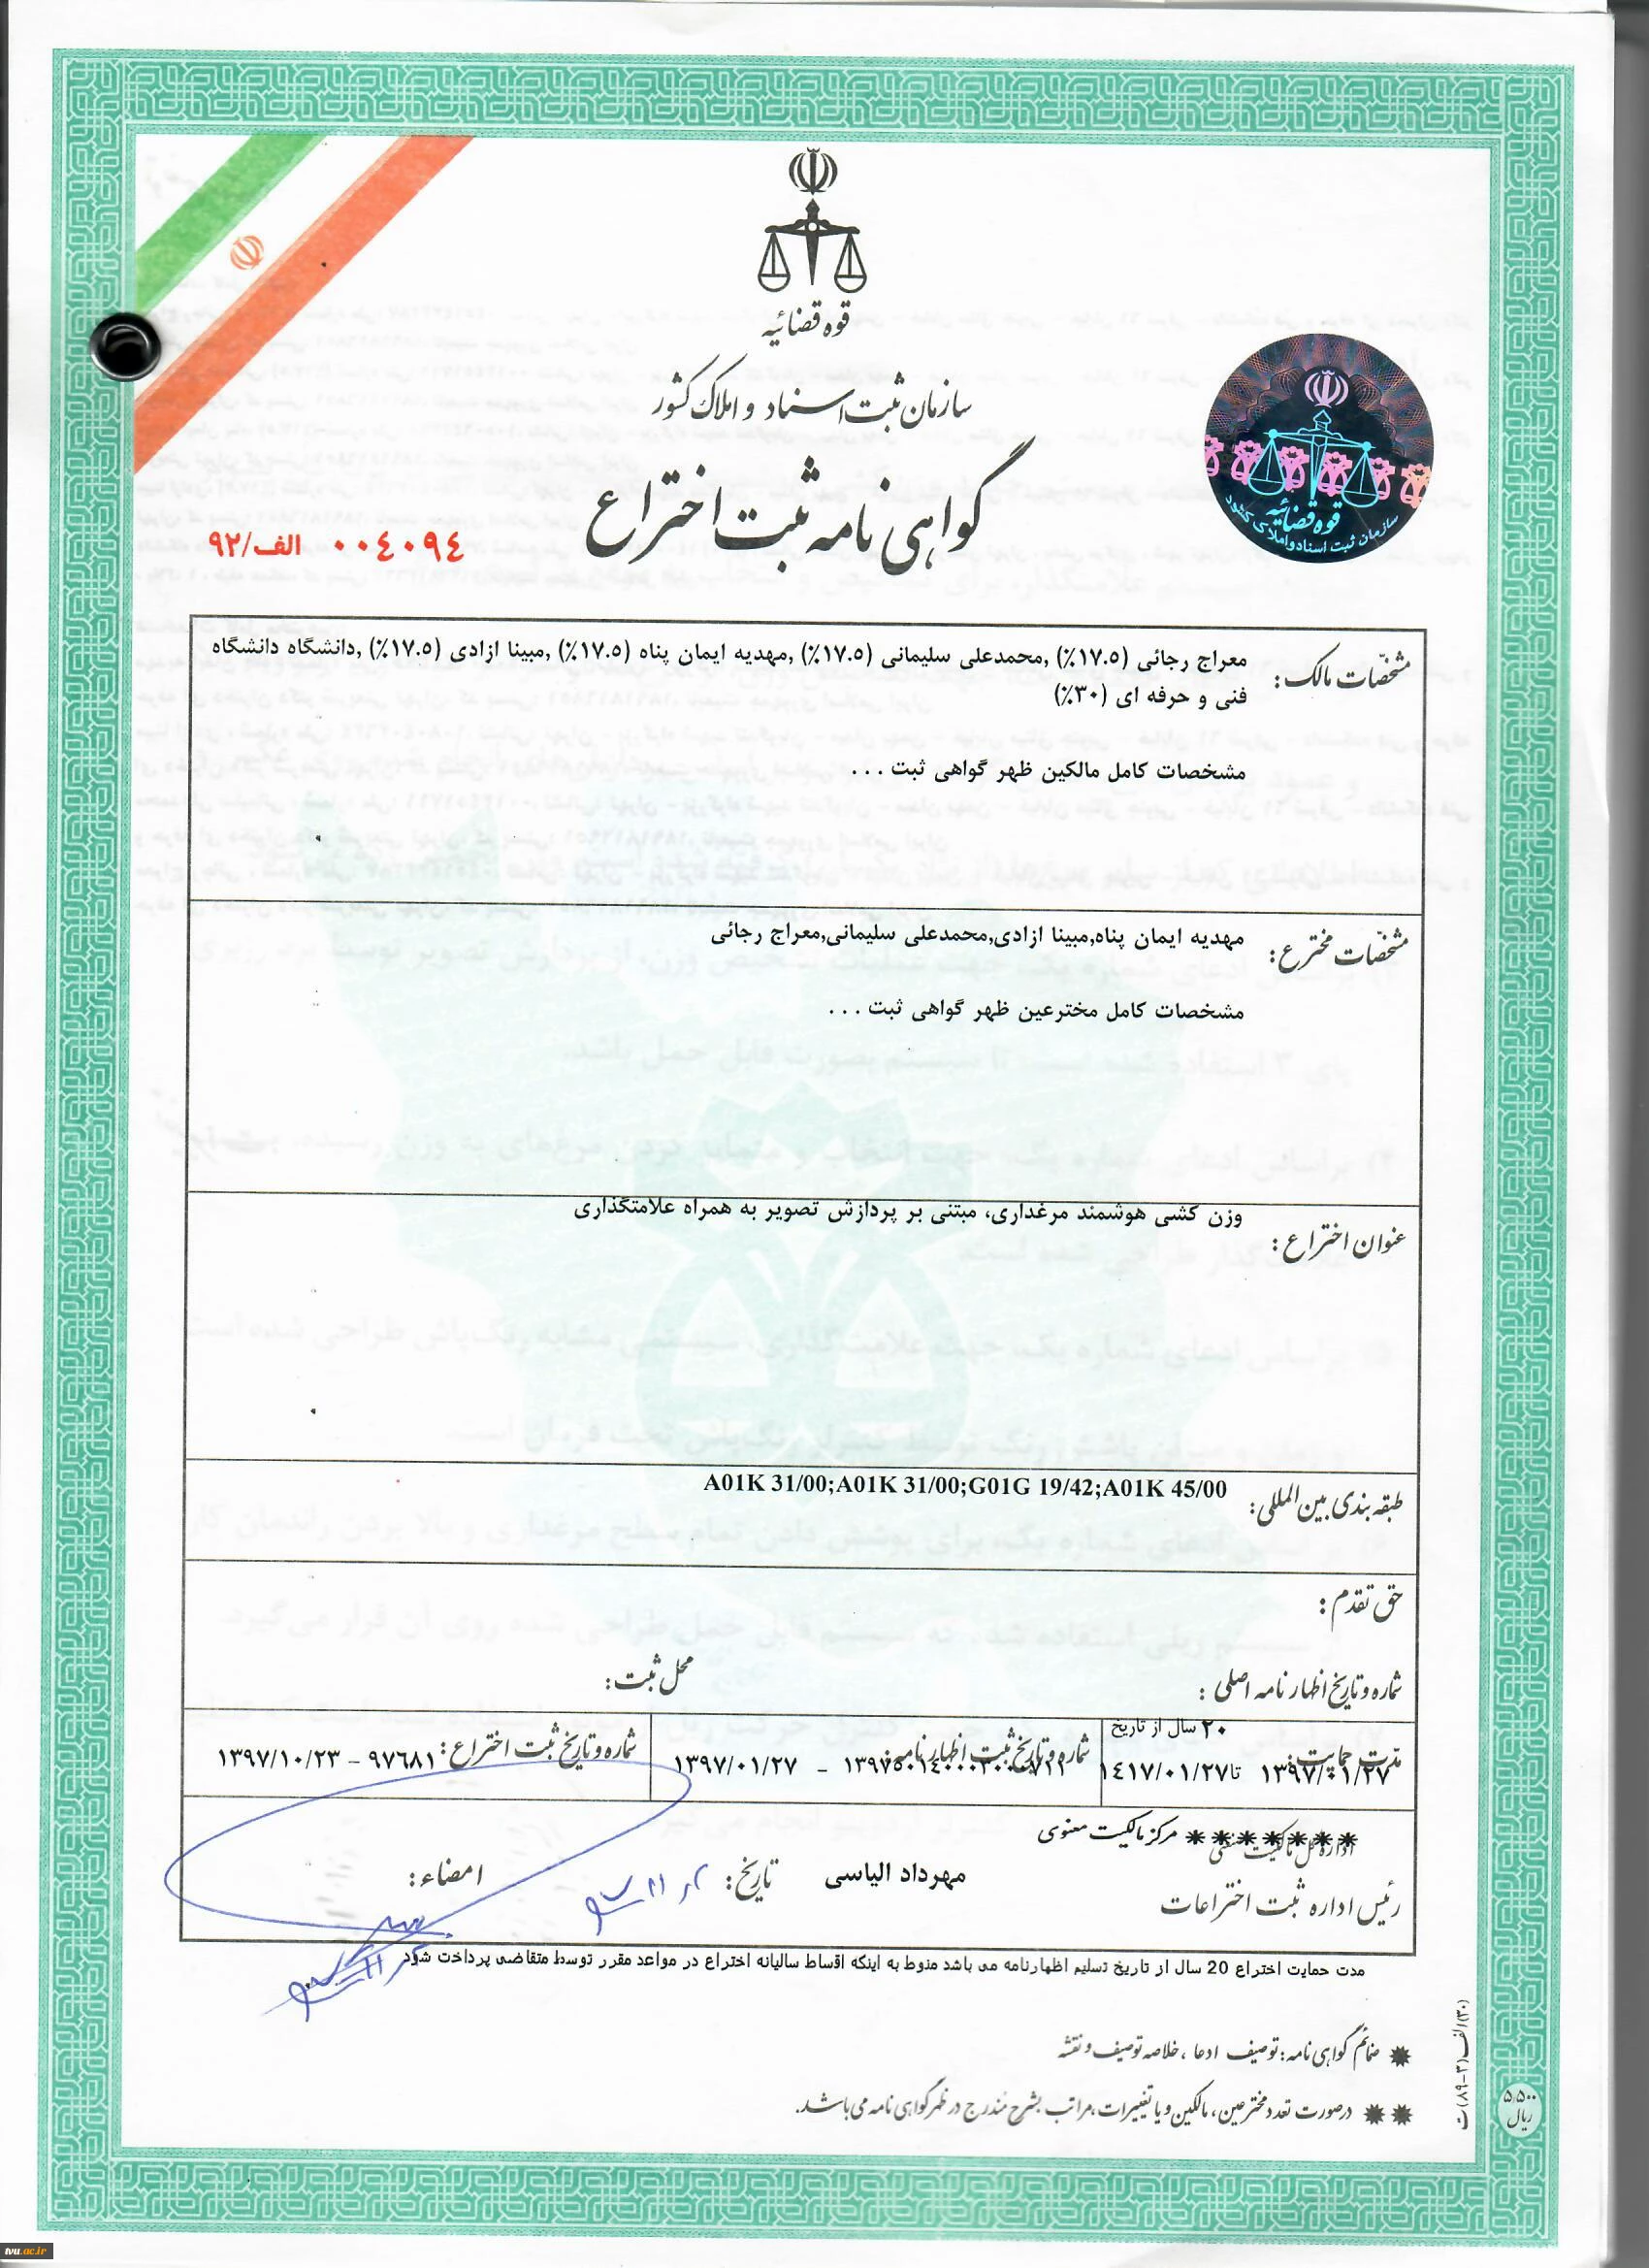 قوه قضائیه
سازمان ثبت اسناد و املاک کشور
گواهی نامه ثبت اختراع
۰۰٤۰۹٤ الف/۹۲
قوه قضائیه
سازمان ثبت اسناد و املاک کشور
مشخّصات مالک: معراج رجائی (۱۷.۵٪) ,محمدعلی سلیمانی (۱۷.۵٪) ,مهدیه ایمان پناه (۱۷.۵٪) ,مبینا ازادی (۱۷.۵٪) ,دانشگاه دانشگاه
فنی و حرفه ای (۳۰٪)
مشخصات کامل مالکین ظهر گواهی ثبت ...
مشخّصات مخترع: مهدیه ایمان پناه,مبینا ازادی,محمدعلی سلیمانی,معراج رجائی
مشخصات کامل مخترعین ظهر گواهی ثبت ...
عنوان اختراع: وزن کشی هوشمند مرغداری، مبتنی بر پردازش تصویر به همراه علامتگذاری
طبقه بندی بین المللی: A01K 31/00;A01K 31/00;G01G 19/42;A01K 45/00
حق تقدم:
شماره و تاریخ اظهارنامه اصلی: محل ثبت:
مدّت حمایت: ۲۰ سال از تاریخ
۱۳۹۷/۰۱/۲۷ تا ۱٤۱۷/۰۱/۲۷
شماره و تاریخ ثبت اظهارنامه: ۱۳۹۷/۰۱/۲۷ -
شماره و تاریخ ثبت اختراع: ۹۷٦۸۱ - ۱۳۹۷/۱۰/۲۳
اداره کل مالکیت صنعتی ****** مرکز مالکیت معنوی
رئیس اداره ثبت اختراعات مهرداد الیاسی تاریخ: امضاء:
مدت حمایت اختراع 20 سال از تاریخ تسلیم اظهارنامه می باشد منوط به اینکه اقساط سالیانه اختراع در مواعد مقرر توسط متقاضی پرداخت شود
* ضمائم گواهی نامه: توصیف ادعا ، خلاصه توصیف و نقشه
** درصورت تعدد مخترعین، مالکین و یا تغییرات، مراتب بشرح مندرج در ظهر گواهی نامه می باشد.
۵,۵۰۰
ریال
tvu.ac.ir